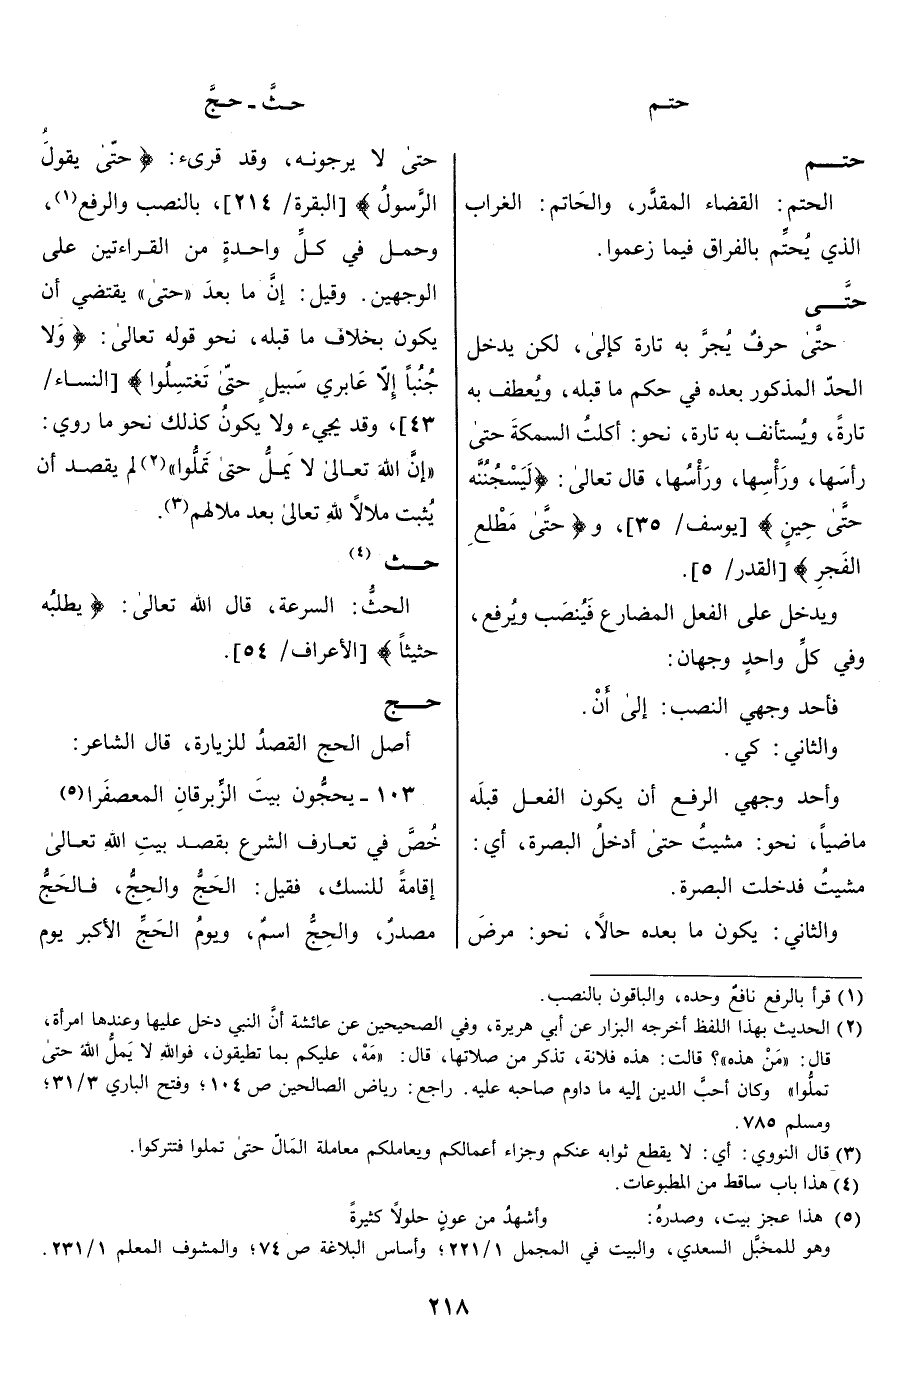 حتم
حثَّ - حجَّ
حتم
الحتم: القضاء المقدَّر، والحَاتم: الغراب
الذي يُحتِّم بالفراق فيما زعموا.
حتَّى
حتَّىٰ حرفٌ يُجرَّ به تارة كإلىٰ، لكن يدخل
الحدّ المذكور بعده في حكم ما قبله، ويُعطف به
تارةً، ويُستأنف به تارة، نحو: أكلتُ السمكةَ حتىٰ
رأسَها، ورَأْسِها، ورَأْسُها، قال تعالىٰ: ﴿لَيَسْجُنُنَّه
حتَّىٰ حِينٍ﴾ [يوسف/ ٣٥]، و﴿حتَّىٰ مَطْلعِ
الفَجرِ﴾ [القدر/ ٥].
ويدخل على الفعل المضارع فَيُنصَب ويُرفع،
وفي كلِّ واحدٍ وجهان:
فأحد وجهي النصب: إلىٰ أَنْ.
والثاني: كي.
وأحد وجهي الرفع أن يكون الفعل قبلَه
ماضياً، نحو: مشيتُ حتىٰ أدخلُ البصرة، أي:
مشيتُ فدخلت البصرة.
والثاني: يكون ما بعده حالًا، نحو: مرضَ
حتىٰ لا يرجونه، وقد قرىء: ﴿حتّىٰ يقولَُ
الرَّسولُ﴾ [البقرة/ ٢١٤]، بالنصب والرفع(١)،
وحمل في كلِّ واحدةٍ من القراءتين على
الوجهين. وقيل: إنَّ ما بعدَ «حتىٰ» يقتضي أن
يكون بخلاف ما قبله، نحو قوله تعالىٰ: ﴿وَلا
جُنُباً إلّا عَابري سَبيلٍ حتىّٰ تَغتسِلُوا﴾ [النساء/
٤٣]، وقد يجيء ولا يكونُ كذلك نحو ما روي:
«إنَّ الله تعالىٰ لا يَملُّ حتىٰ تَملُّوا»(٢) لم يقصد أن
يُثبت ملالًا للهِ تعالىٰ بعد ملالهم(٣).
حث (٤)
الحثُّ: السرعة، قال الله تعالىٰ: ﴿يطلبُه
حثيثاً﴾ [الأعراف/ ٥٤].
حج
أصل الحج القصدُ للزيارة، قال الشاعر:
١٠٣ - يحجُّون بيتَ الزِّبرقانِ المعصفَرا(٥)
خُصَّ في تعارف الشرع بقصد بيتِ اللهِ تعالىٰ
إقامةً للنسك، فقيل: الحَجُّ والحِجُّ، فالحَجُّ
مصدرٌ، والحِجُّ اسمٌ، ويومُ الحَجِّ الأكبر يوم
(١) قرأ بالرفع نافعٌ وحده، والباقون بالنصب.
(٢) الحديث بهذا اللفظ أخرجه البزار عن أبي هريرة، وفي الصحيحين عن عائشة أنَّ النبي دخل عليها وعندها امرأة،
قال: «مَنْ هذه»؟ قالت: هذه فلانة، تذكر من صلاتها، قال: «مَهْ، عليكم بما تطيقون، فوالله لا يَملُّ اللهُ حتىٰ
تملُّوا» وكان أحبَّ الدين إليه ما داوم صاحبه عليه. راجع: رياض الصالحين ص ١٠٤؛ وفتح الباري ٣١/٣؛
ومسلم ٧٨٥.
(٣) قال النووي: أي: لا يقطع ثوابه عنكم وجزاء أعمالكم ويعاملكم معاملة المَالّ حتىٰ تملوا فتتركوا.
(٤) هذا باب ساقط من المطبوعات.
(٥) هذا عجز بيت، وصدرهُ: وأشهدُ من عونٍ حلولًا كثيرةً
وهو للمخبَّل السعدي، والبيت في المجمل ٢٢١/١؛ وأساس البلاغة ص ٧٤؛ والمشوف المعلم ٢٣١/١.
٢١٨